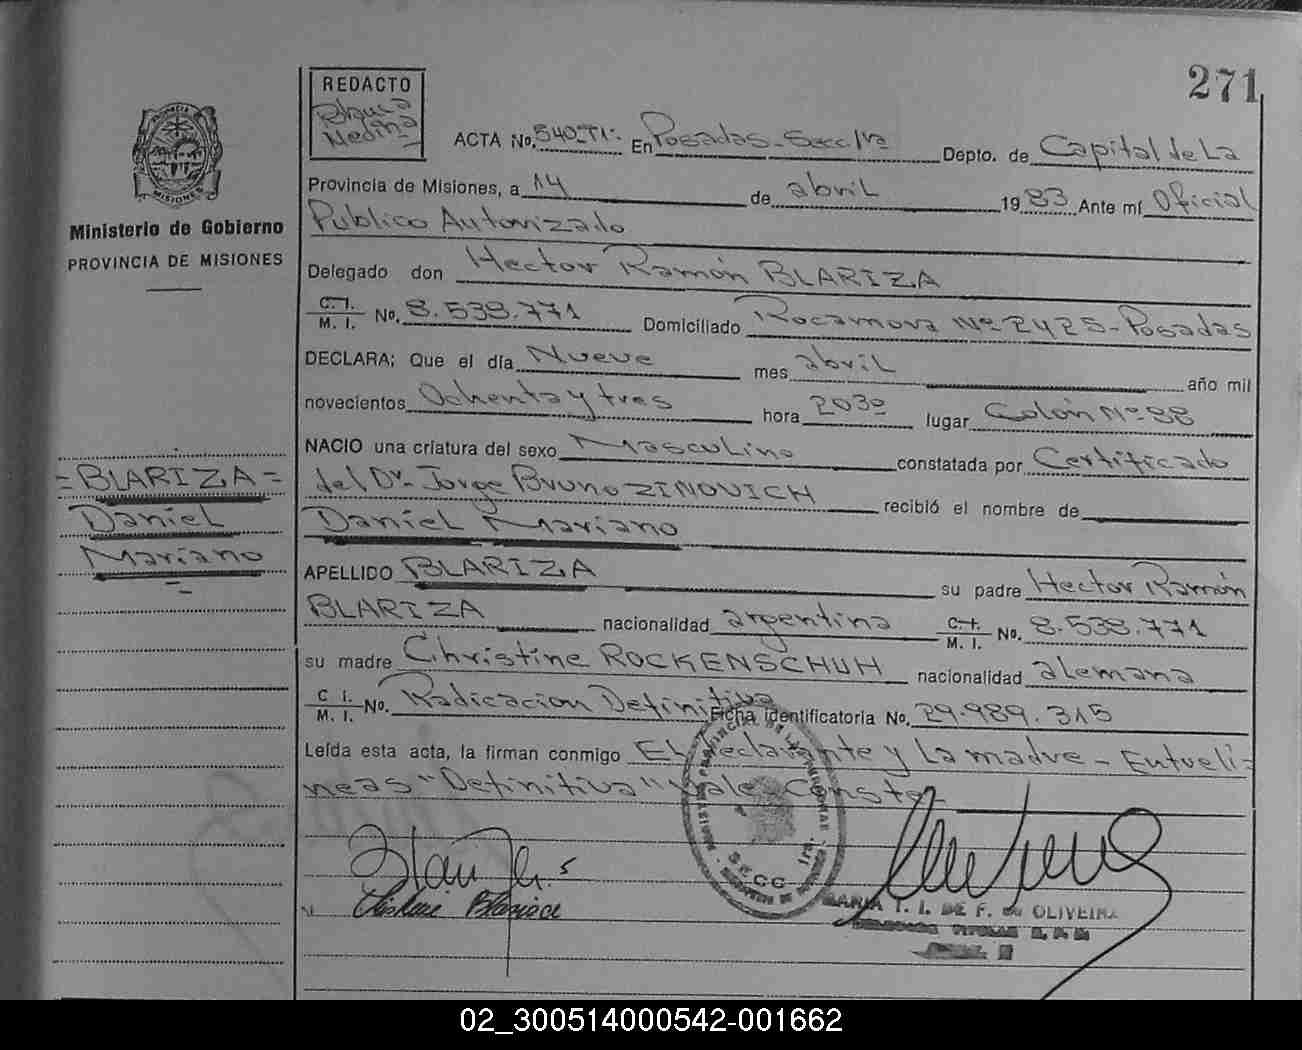 271
REDACTO
Medina
ACTA No. 540-TI- En Posadas-Secc 1ra Depto. de Capital de La
Provincia de Misiones, a 14 de abril 1983 Ante mí Oficial
Publico Autorizado
Delegado don Hector Ramón BLARIZA
C. I. M. I. No. 8.538.771 Domiciliado Rocamora Nº 2425-Posadas
DECLARA; Que el día Nueve mes abril año mil
novecientos Ochenta y tres hora 2030 lugar Colón Nº 88
NACIO una criatura del sexo Masculino constatada por Certificado
del Dr. Jorge Bruno ZINOVICH recibió el nombre de
Daniel Mariano
APELLIDO BLARIZA su padre Hector Ramón
BLARIZA nacionalidad argentina C. I. M. I. No. 8.538.771
su madre Christine ROCKENSCHUH nacionalidad alemana
C. I. M. I. No. Radicacion Definitiva Ficha identificatoria No. 29.989.315
Leída esta acta, la firman conmigo El declarante y La madre - Entreli=
neas "Definitiva" Vale Conste-
MISIONES
Ministerio de Gobierno
PROVINCIA DE MISIONES
=BLARIZA=
Daniel
Mariano
SECC 1ra.
MARIA T. I. DE F. de OLIVEIRA
DELEGADA TITULAR R. P. P.
02_300514000542-001662